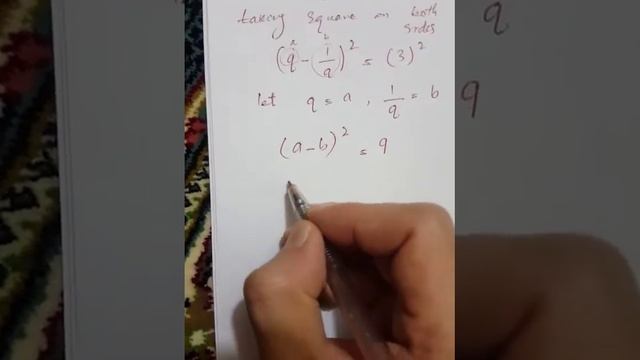 taking square on both
sides
(q - 1/q)² = (3)²
let q = a , 1/q = b
(a - b)² = 9